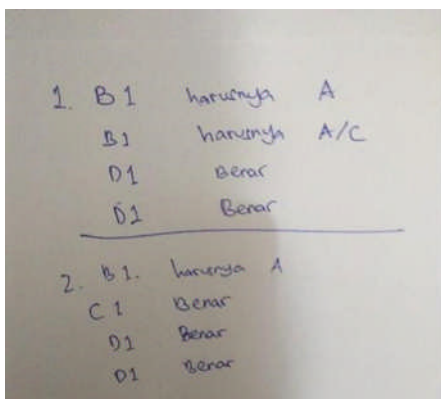 1. B1 harusnya A
B1 harusnya A/C
D1 Benar
D1 Benar
2. B1. harusnya A
C1 Benar
D1 Benar
D1 Benar